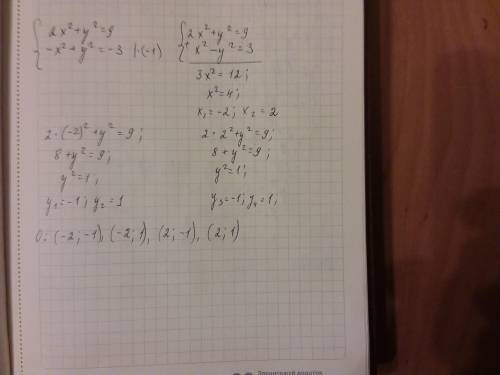 2x²+y²=9
-x²+y²=-3 |·(-1)
2x²+y²=9
+ x²-y²=3
3x²=12;
x²=4;
x₁=-2; x₂=2
2·(-2)²+y²=9;
8+y²=9;
y²=1;
y₁=-1; y₂=1
2·2²+y²=9;
8+y²=9;
y²=1;
y₃=-1; y₄=1;
O: (-2;-1), (-2;1), (2;-1), (2;1)